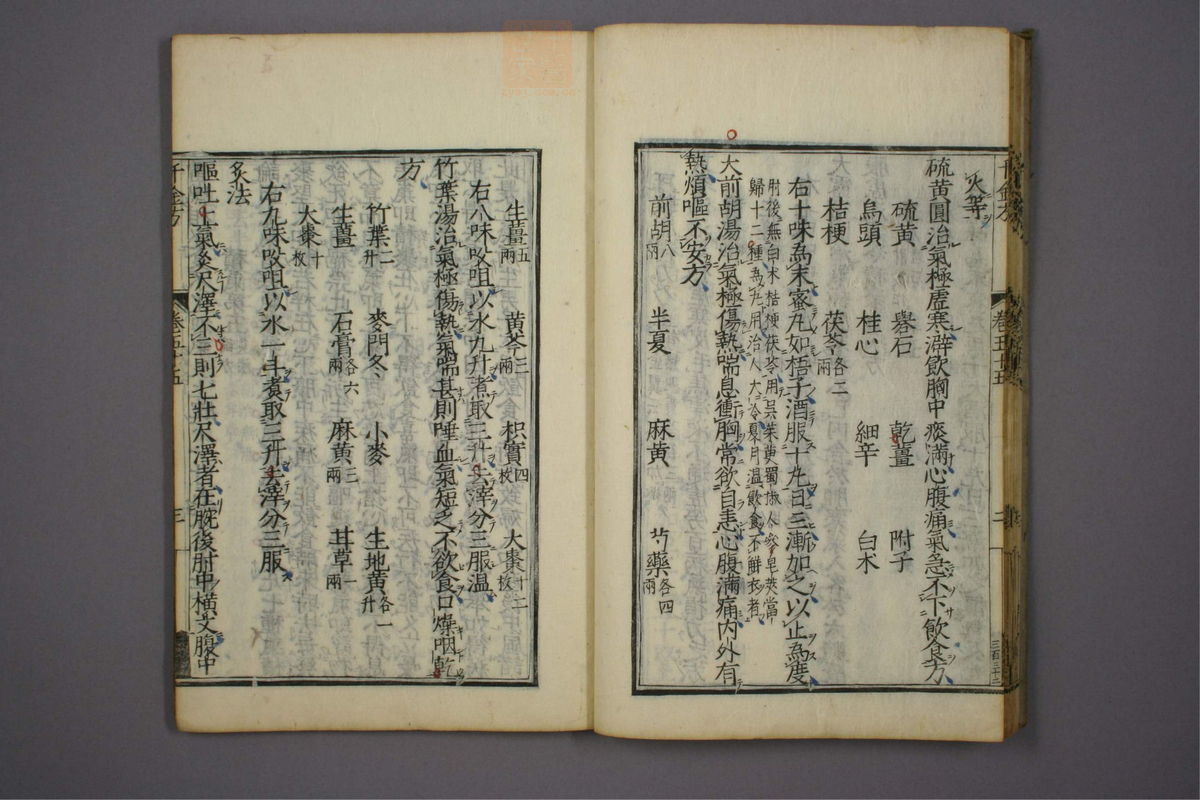 火等
硫黄圓治氣極虛寒澼飲胸中痰滿心腹痛氣急不下飲食方
硫黄 礜石 乾薑 附子
烏頭 桂心 細辛 白朮
桔梗 茯苓各二兩
右十味為末蜜丸如梧子酒服十丸日三漸加之以止為度
肘後無白朮桔梗茯苓用吳茱萸蜀椒人參皂莢當
歸十二種為丸用治人大冷夏月溫飲食不解衣者
大前胡湯治氣極傷熱喘息衝胸常欲自恚心腹滿痛内外有
熱煩嘔不安方
前胡八兩 半夏 麻黄 芍藥各四兩
千金方 卷五十五 二
三百三十二
生薑五兩 黄芩三兩 枳實四枚 大棗十二枚
右八味㕮咀以水九升煮取三升去滓分三服温
竹葉湯治氣極傷熱氣喘甚則唾血氣短乏不欲食口燥咽乾
方
竹葉二升 麥門冬 小麥 生地黄各一升
生薑 石膏各六兩 麻黄三兩 甘草一兩
大棗十枚
右九味㕮咀以水一斗煮取三升去滓分三服
炙法
嘔吐上氣灸尺澤不三則七壯尺澤者在腕後肘中横文腹中
千金方 卷五十五 三